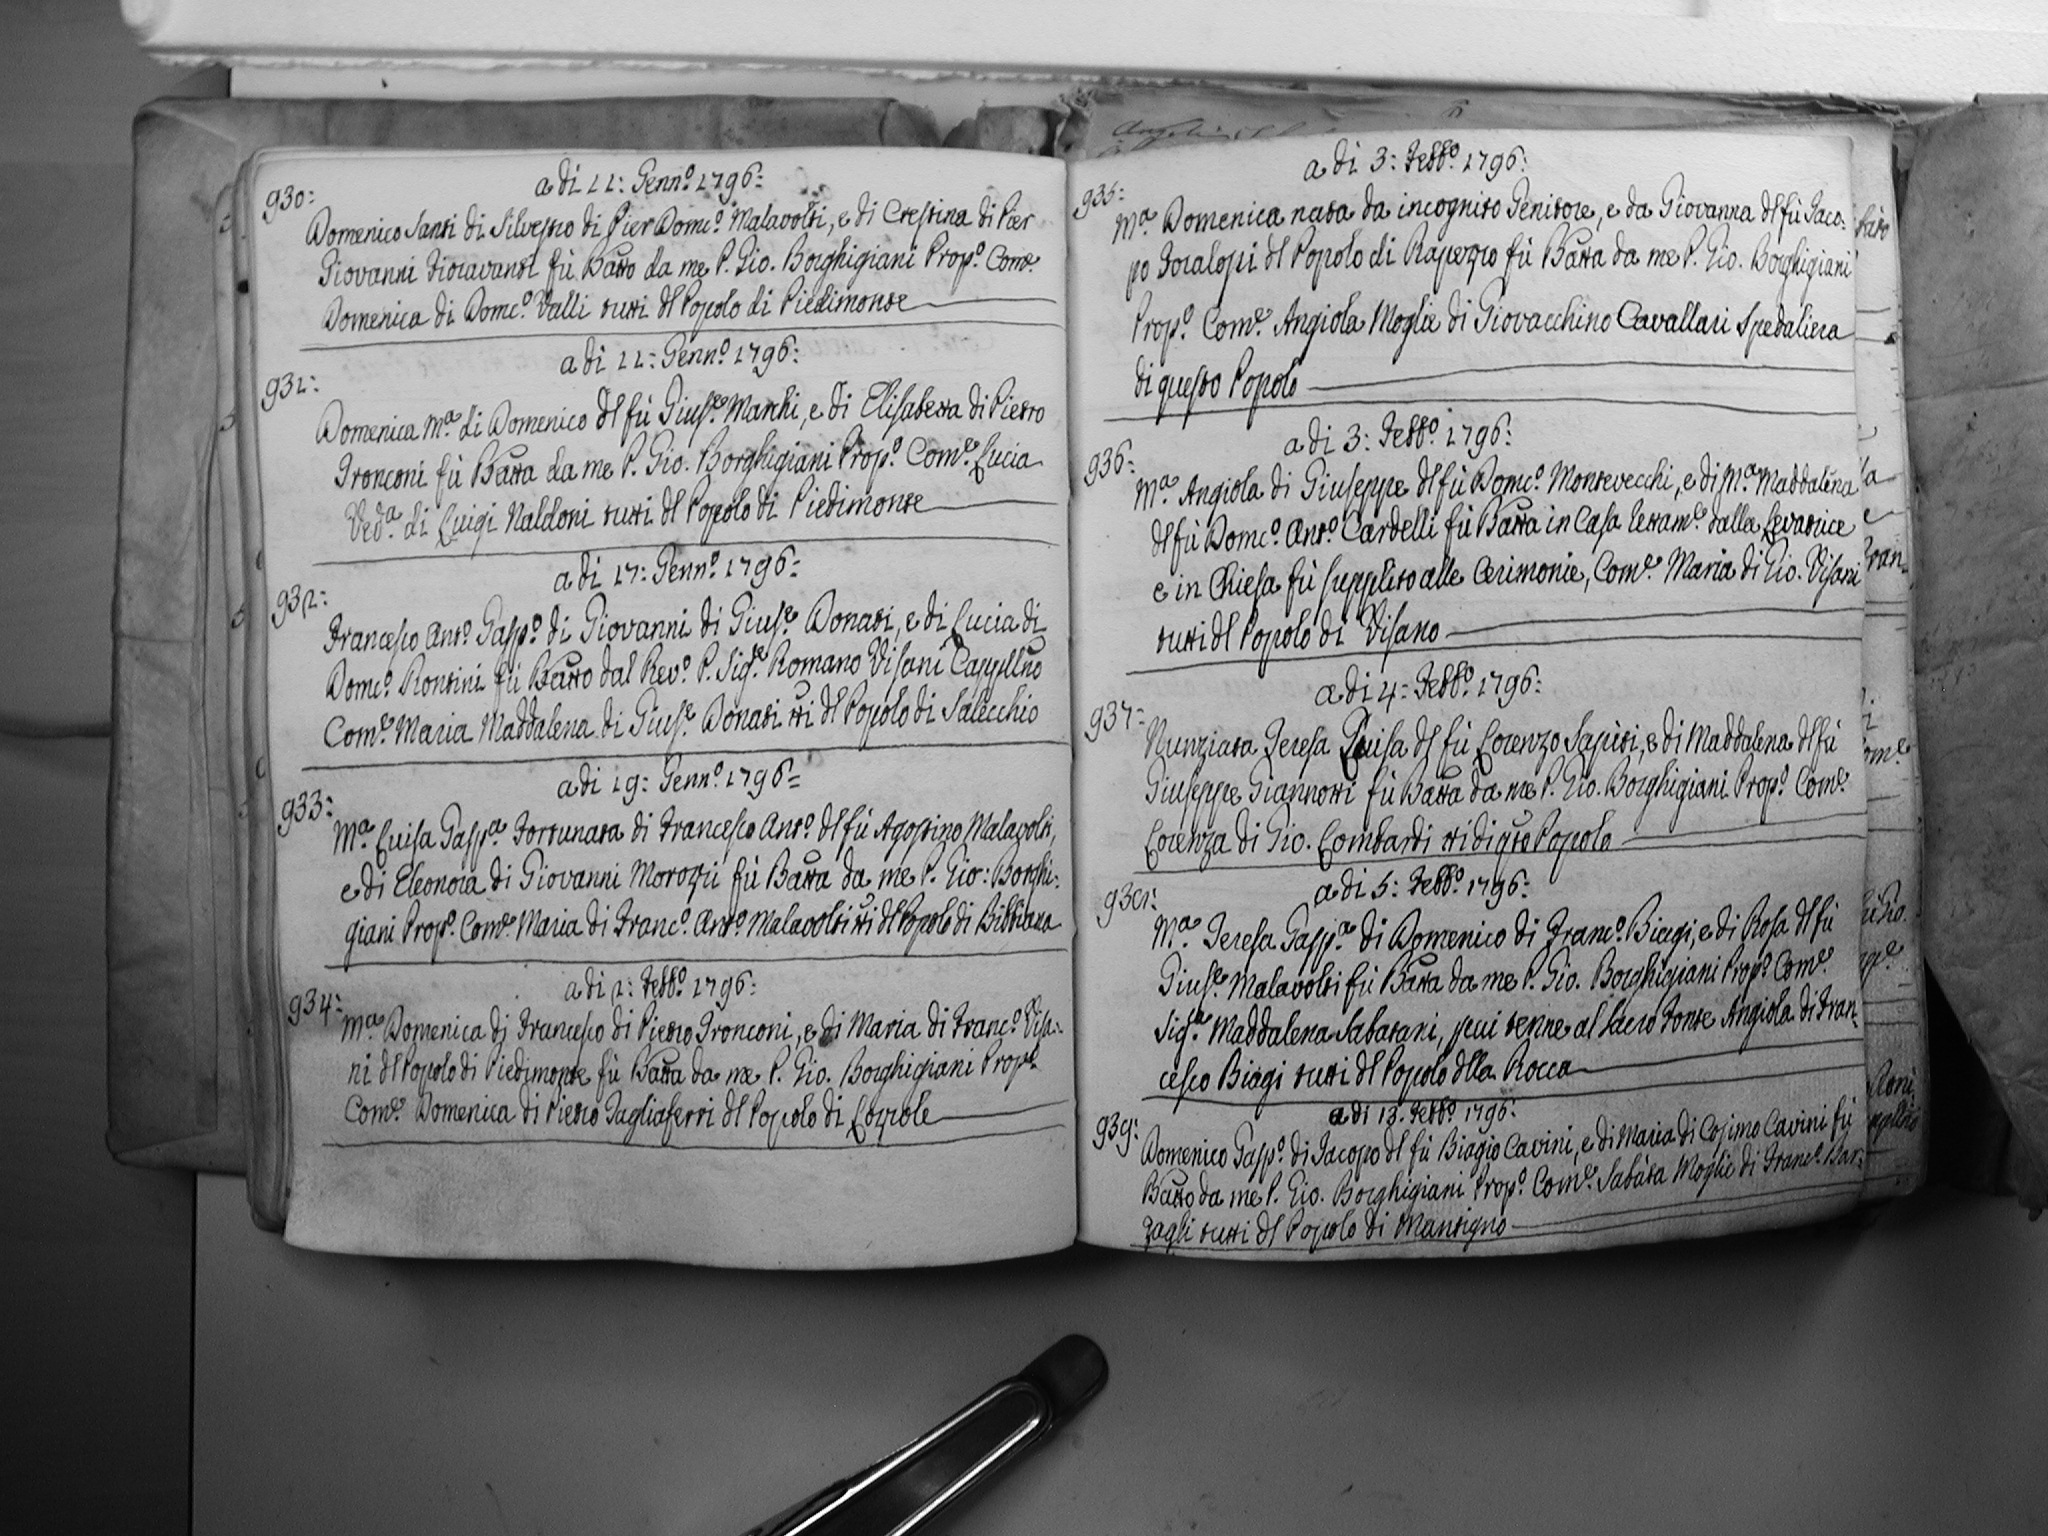 a di 11: Genn.º 1796:
930:
Domenico Santi di Silvestro di Pier Dom.co Malavolti, e di Crestina di Pier
Giovanni Fioravanti fù Batto da me P. Gio. Borghigiani Prop.º Com.e
Domenica di Dom.co Valli tutti dl Popolo di Piedimonte
a di 11: Genn.º 1796:
931:
Domenica M.a di Domenico dl fù Gius.e Marchi, e di Elisabetta di Pietro
Tronconi fù Batta da me P. Gio. Borghigiani Prop.º Com.e Lucia
Ved.a di Luigi Naldoni tutti dl Popolo di Piedimonte
a di 17: Genn.º 1796:
932:
Francesco Ant.º Gasp.º di Giovanni di Gius.e Donati, e di Lucia di
Dom.co Rontini fù Batto dal Rev.º P. Sig.re Romano Visani Cappllno
Com.e Maria Maddalena di Gius.e Donati tti dl Popolo di Salecchio
a di 19: Genn.º 1796=
933:
M.a Luisa Gasp.a Fortunata di Francesco Ant.º dl fù Agostino Malavolti,
e di Eleonora di Giovanni Morozzi fù Batta da me P. Gio: Borghi:
giani Prop.º Com.e Maria di Franc.º Ant.º Malavolti tti dl Popolo di Bibbiana
a di 2: Febb.º 1796:
934:
M.a Domenica di Francesco di Pietro Tronconi, e di Maria di Franc.º Visa:
ni dl Popolo di Piedimonte fù Batta da me P. Gio. Borghigiani Prop.º
Com.e Domenica di Pietro Tagliaferri dl Popolo di Lozzole
a di 3: Febb.º 1796:
935:
M.a Domenica nata da incognito Genitore, e da Giovanna dl fù Iaco:
po Foralossi dl Popolo di Rapezzo fù Batta da me P. Gio. Borghigiani
Prop.º Com.e Angiola Moglie di Giovacchino Cavallari Spedaliera
di questo Popolo
a di 3: Febb.º 1796:
936:
M.a Angiola di Giuseppe dl fù Dom.co Montevecchi, e di M.a Maddalena
dl fù Dom.co Ant.º Cardelli fù Batta in Casa dalla Levatrice
e in Chiesa fù supplito alle Cerimonie, Com.e Maria di Gio. Visani
tutti dl Popolo di Visano
a di 4: Febb.º 1796:
937:
Nunziata Teresa Luisa dl fù Lorenzo Sapiti, e di Maddalena dl fù
Giuseppe Giannotti fù Batta da me P. Gio. Borghigiani Prop.º Com.e
Lorenza di Gio. Lombardi tti di qto Popolo
a di 5: Febb.º 1796:
938:
M.a Teresa Gasp.a di Domenico di Franc.º Biagi, e di Rosa dl fù
Gius.e Malavolti fù Batta da me P. Gio. Borghigiani Prop.º Com.e
Sig.a Maddalena Sabatani, p lui tenne al Sacro Fonte Angiola di Fran:
cesco Biagi tutti dl Popolo dlla Rocca
a di 13: Febb.º 1796:
939:
Domenico Gasp.º di Iacopo dl fù Biagio Cavini, e di Maria di Cosimo Cavini fù
Batto da me P. Gio. Borghigiani Prop.º Com.e Sabata Moglie di Franc.º Bar:
zagli tutti dl Popolo di Mantigno